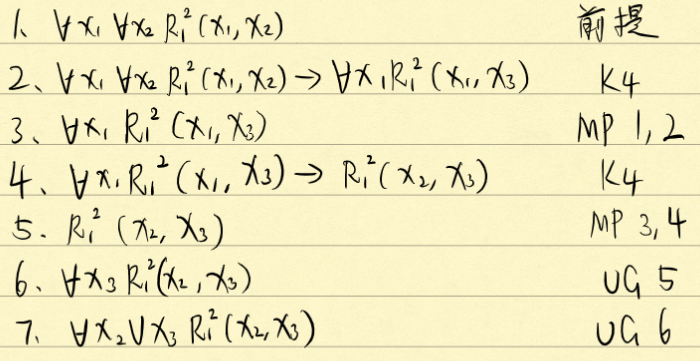 1、∀x₁ ∀x₂ R₁²(x₁,x₂) 前提
2、∀x₁ ∀x₂ R₁²(x₁,x₂) → ∀x₁R₁²(x₁,x₃) K4
3、∀x₁ R₁²(x₁,x₃) MP 1,2
4、∀x₁R₁²(x₁,x₃) → R₁²(x₂,x₃) K4
5. R₁²(x₂,x₃) MP 3,4
6、∀x₃ R₁²(x₂,x₃) UG 5
7、∀x₂∀x₃ R₁²(x₂,x₃) UG 6